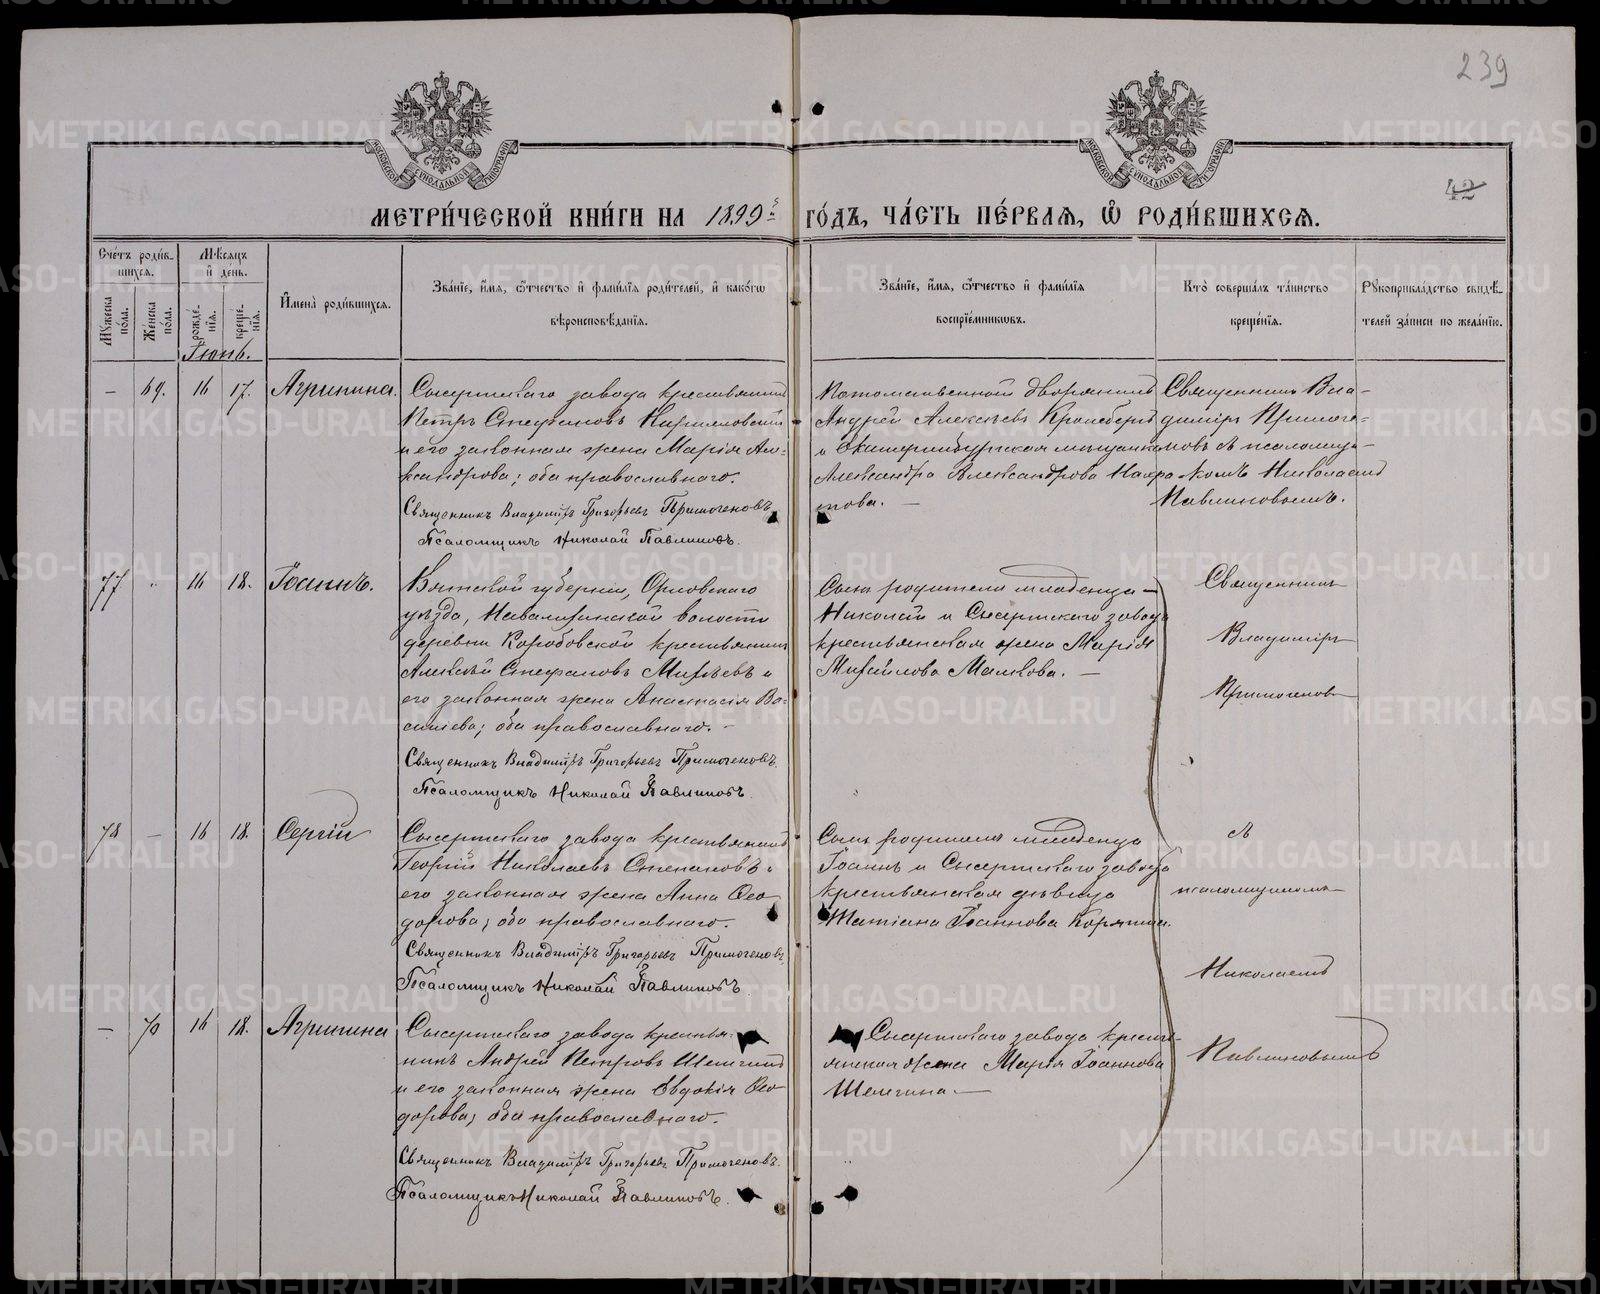 239
42
МОСКОВСКОЙ СѴНОДАЛЬНОЙ ТИПОГРАФІИ
МОСКОВСКОЙ СѴНОДАЛЬНОЙ ТИПОГРАФІИ
МЕТРИ́ЧЕСКОЙ КНИ́ГИ НА 1899й ГО́ДЪ, ЧА́СТЬ ПЕ́РВАѦ, Ѽ РОДИ́ВШИХСѦ.
Сче́тъ роди́в-
шихсѧ.
Мꙋжеска по́ла.
Же́нска по́ла.
Мѣ́сѧцъ
и҆ де́нь.
рожде́-
нїѧ.
креще́-
нїѧ.
Іюнь.
И҆мена̀ роди́вшихсѧ.
Зва́нїе, и҆́мѧ, ѻ҆́тчество и҆ фами́лїѧ роди́телей, и҆ како́гѡ
вѣроисповѣ́данїѧ.
Зва́нїе, и҆́мѧ, ѻ҆́тчество и҆ фами́лїѧ
воспрїе́мникѡвъ.
Кто̀ соверша́лъ та́инство
креще́нїѧ.
Рꙋкоприкла́дство свидѣ́-
телей за́писи по жела́нїю.
— 69. 16 17. Агрипина.
Сысертскаго завода крестьянинъ
Петръ Стефановъ Кирилловский
и его законная жена Марія Але-
ксандрова; оба православнаго.
Священникъ Владиміръ Григорьевъ Примогеновъ
Псаломщикъ Николай Павлиновъ.
Потомственный дворянинъ
Андрей Алексѣевъ Кронебергъ
и Екатеринбургская мѣщанка
Александра Александрова Нахра-
това. —
Священникъ Вла-
диміръ Примоге-
новъ съ псаломщи-
комъ Николаемъ
Павлиновымъ.
77 „ 16 18. Іоаннъ.
Вятской губерніи, Орловскаго
уѣзда, волости
деревни Коробовской крестьянинъ
Алексѣй Стефановъ Михѣевъ и
его законная жена Анастасія Ва-
сильева; оба православнаго. —
Священникъ Владиміръ Григорьевъ Примогеновъ.
Псаломщикъ Николай Павлиновъ.
Сынъ родителя младенца —
Николай и Сысертскаго завода
крестьянская жена Марія
Михайлова Малкова. —
Священникъ
Владиміръ
Примогеновъ
78 — 16 18. Сергій
Сысертскаго завода крестьянинъ
Георгій Николаевъ Степановъ и
его законная жена Анна Ѳео-
дорова; оба православнаго. —
Священникъ Владиміръ Григорьевъ Примогеновъ.
Псаломщикъ Николай Павлиновъ
Сынъ родителя младенца
Іоаннъ и Сысертскаго завода
крестьянская дѣвица
Татіана Іоаннова
съ
псаломщикомъ
Николаемъ
Павлиновымъ
— 70 16 18. Агрипина
Сысертскаго завода крестья-
нинъ Андрей Петровъ Шелгинъ
и его законная жена Евдокія Ѳео-
дорова; оба православнаго.
Священникъ Владиміръ Григорьевъ Примогеновъ.
Псаломщикъ Николай Павлиновъ.
Сысертскаго завода крестъ-
янская жена Марія Іоаннова
Шелгина —
METRIKI.GASO-URAL.RU